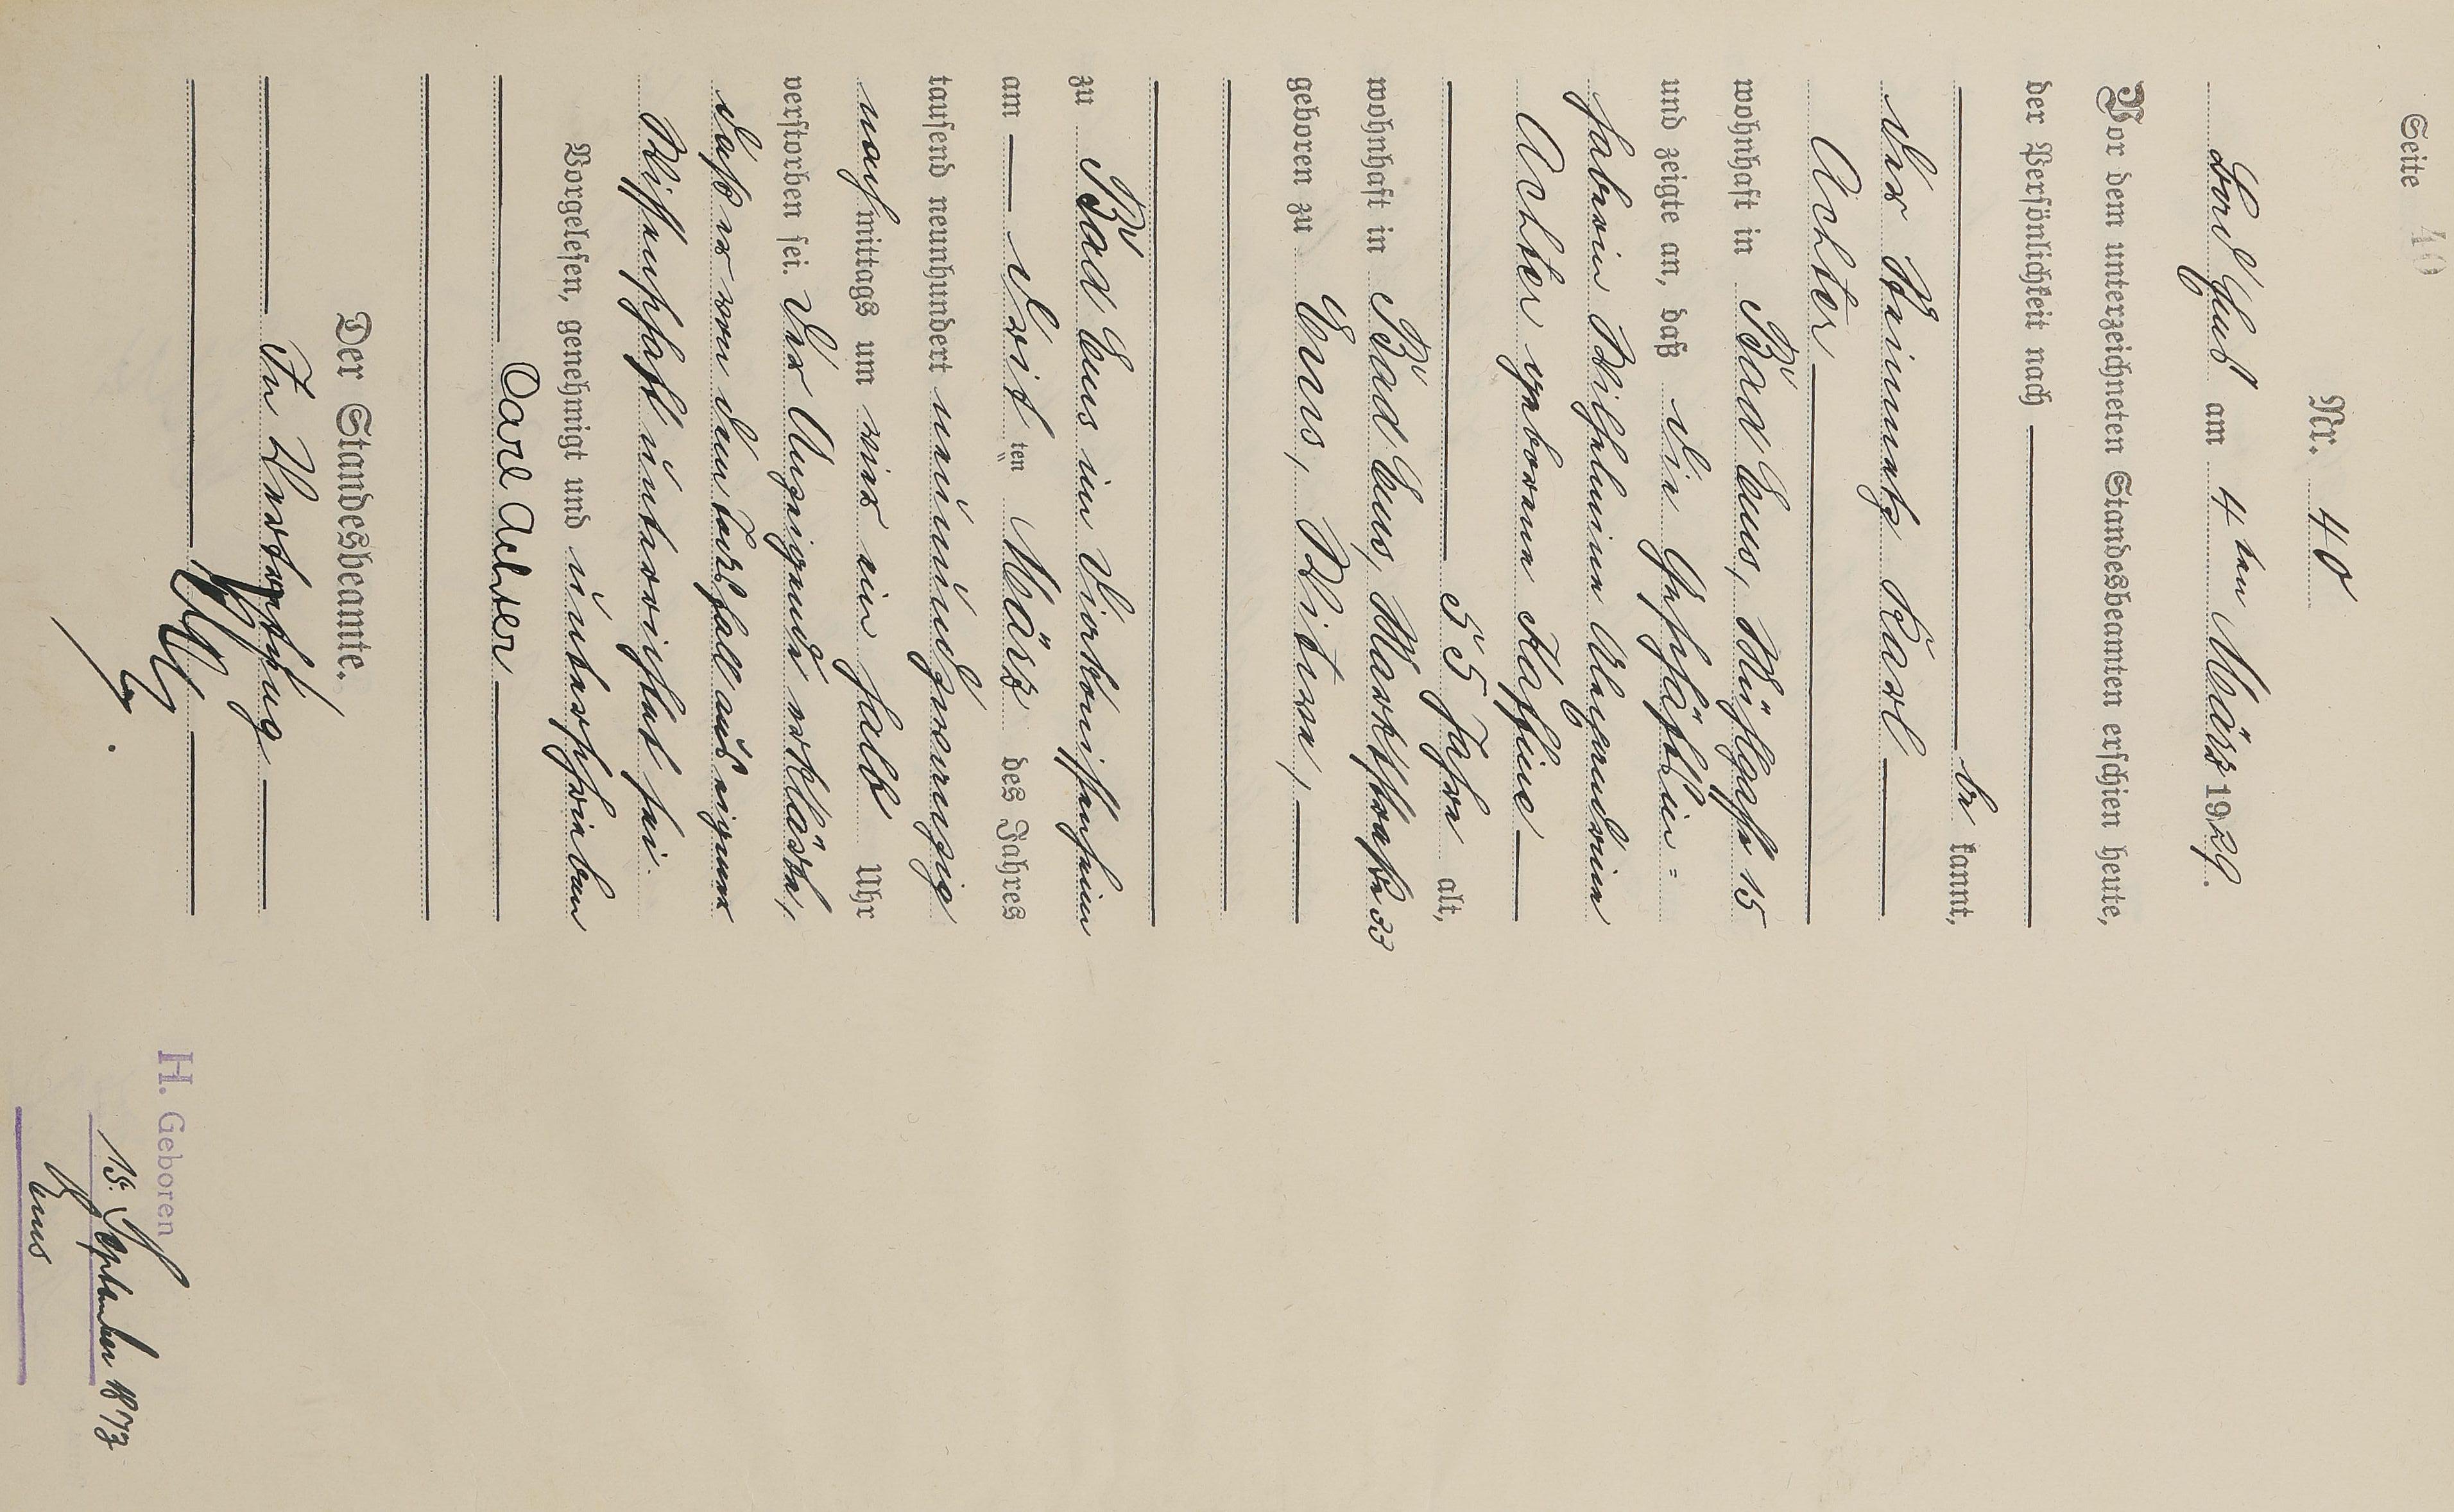 Seite 40
Nr. 40
Bad Ems am 4ten März 1929.
Vor dem unterzeichneten Standesbeamten erschien heute,
der Persönlichkeit nach
be kannt,
der Steinmetz Karl
Achter
wohnhaft in Bad Ems, Mühlgasse 15
und zeigte an, daß die Geschäftsin=
haberin Wilhelmine Alexandrine
Achter geborene Kaffine
55 Jahre alt,
wohnhaft in Bad Ems, Marktstraße 33
geboren zu Ems, Witwe,
zu Bad Ems im Diakonissenheim
am dritten März des Jahres
tausend neunhundert neunundzwanzig
nachmittags um vier ein halb Uhr
verstorben sei. Der Anzeigende erklärte,
daß er von dem Todesfall aus eigener
Wissenschaft unterrichtet sei.
Vorgelesen, genehmigt und unterschrieben
Carl Achter
Der Standesbeamte.
In Vertretung
H. Geboren
15. September 1873
Ems